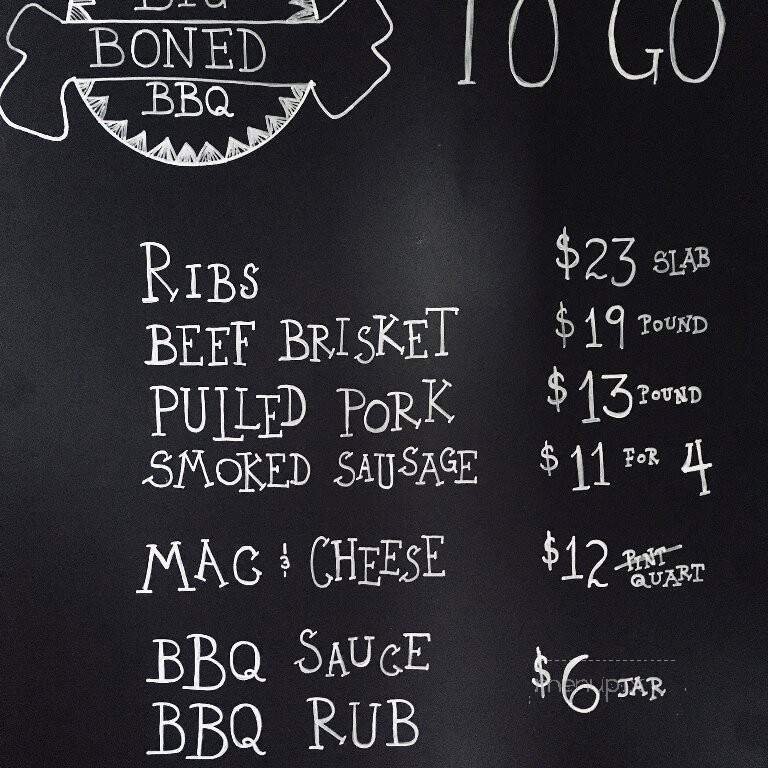 BIG
BONED
BBQ
TO GO
RIBS $23 SLAB
BEEF BRISKET $19 POUND
PULLED PORK $13 POUND
SMOKED SAUSAGE $11 FOR 4
MAC & CHEESE $12 PINT QUART
BBQ SAUCE
BBQ RUB $6 JAR